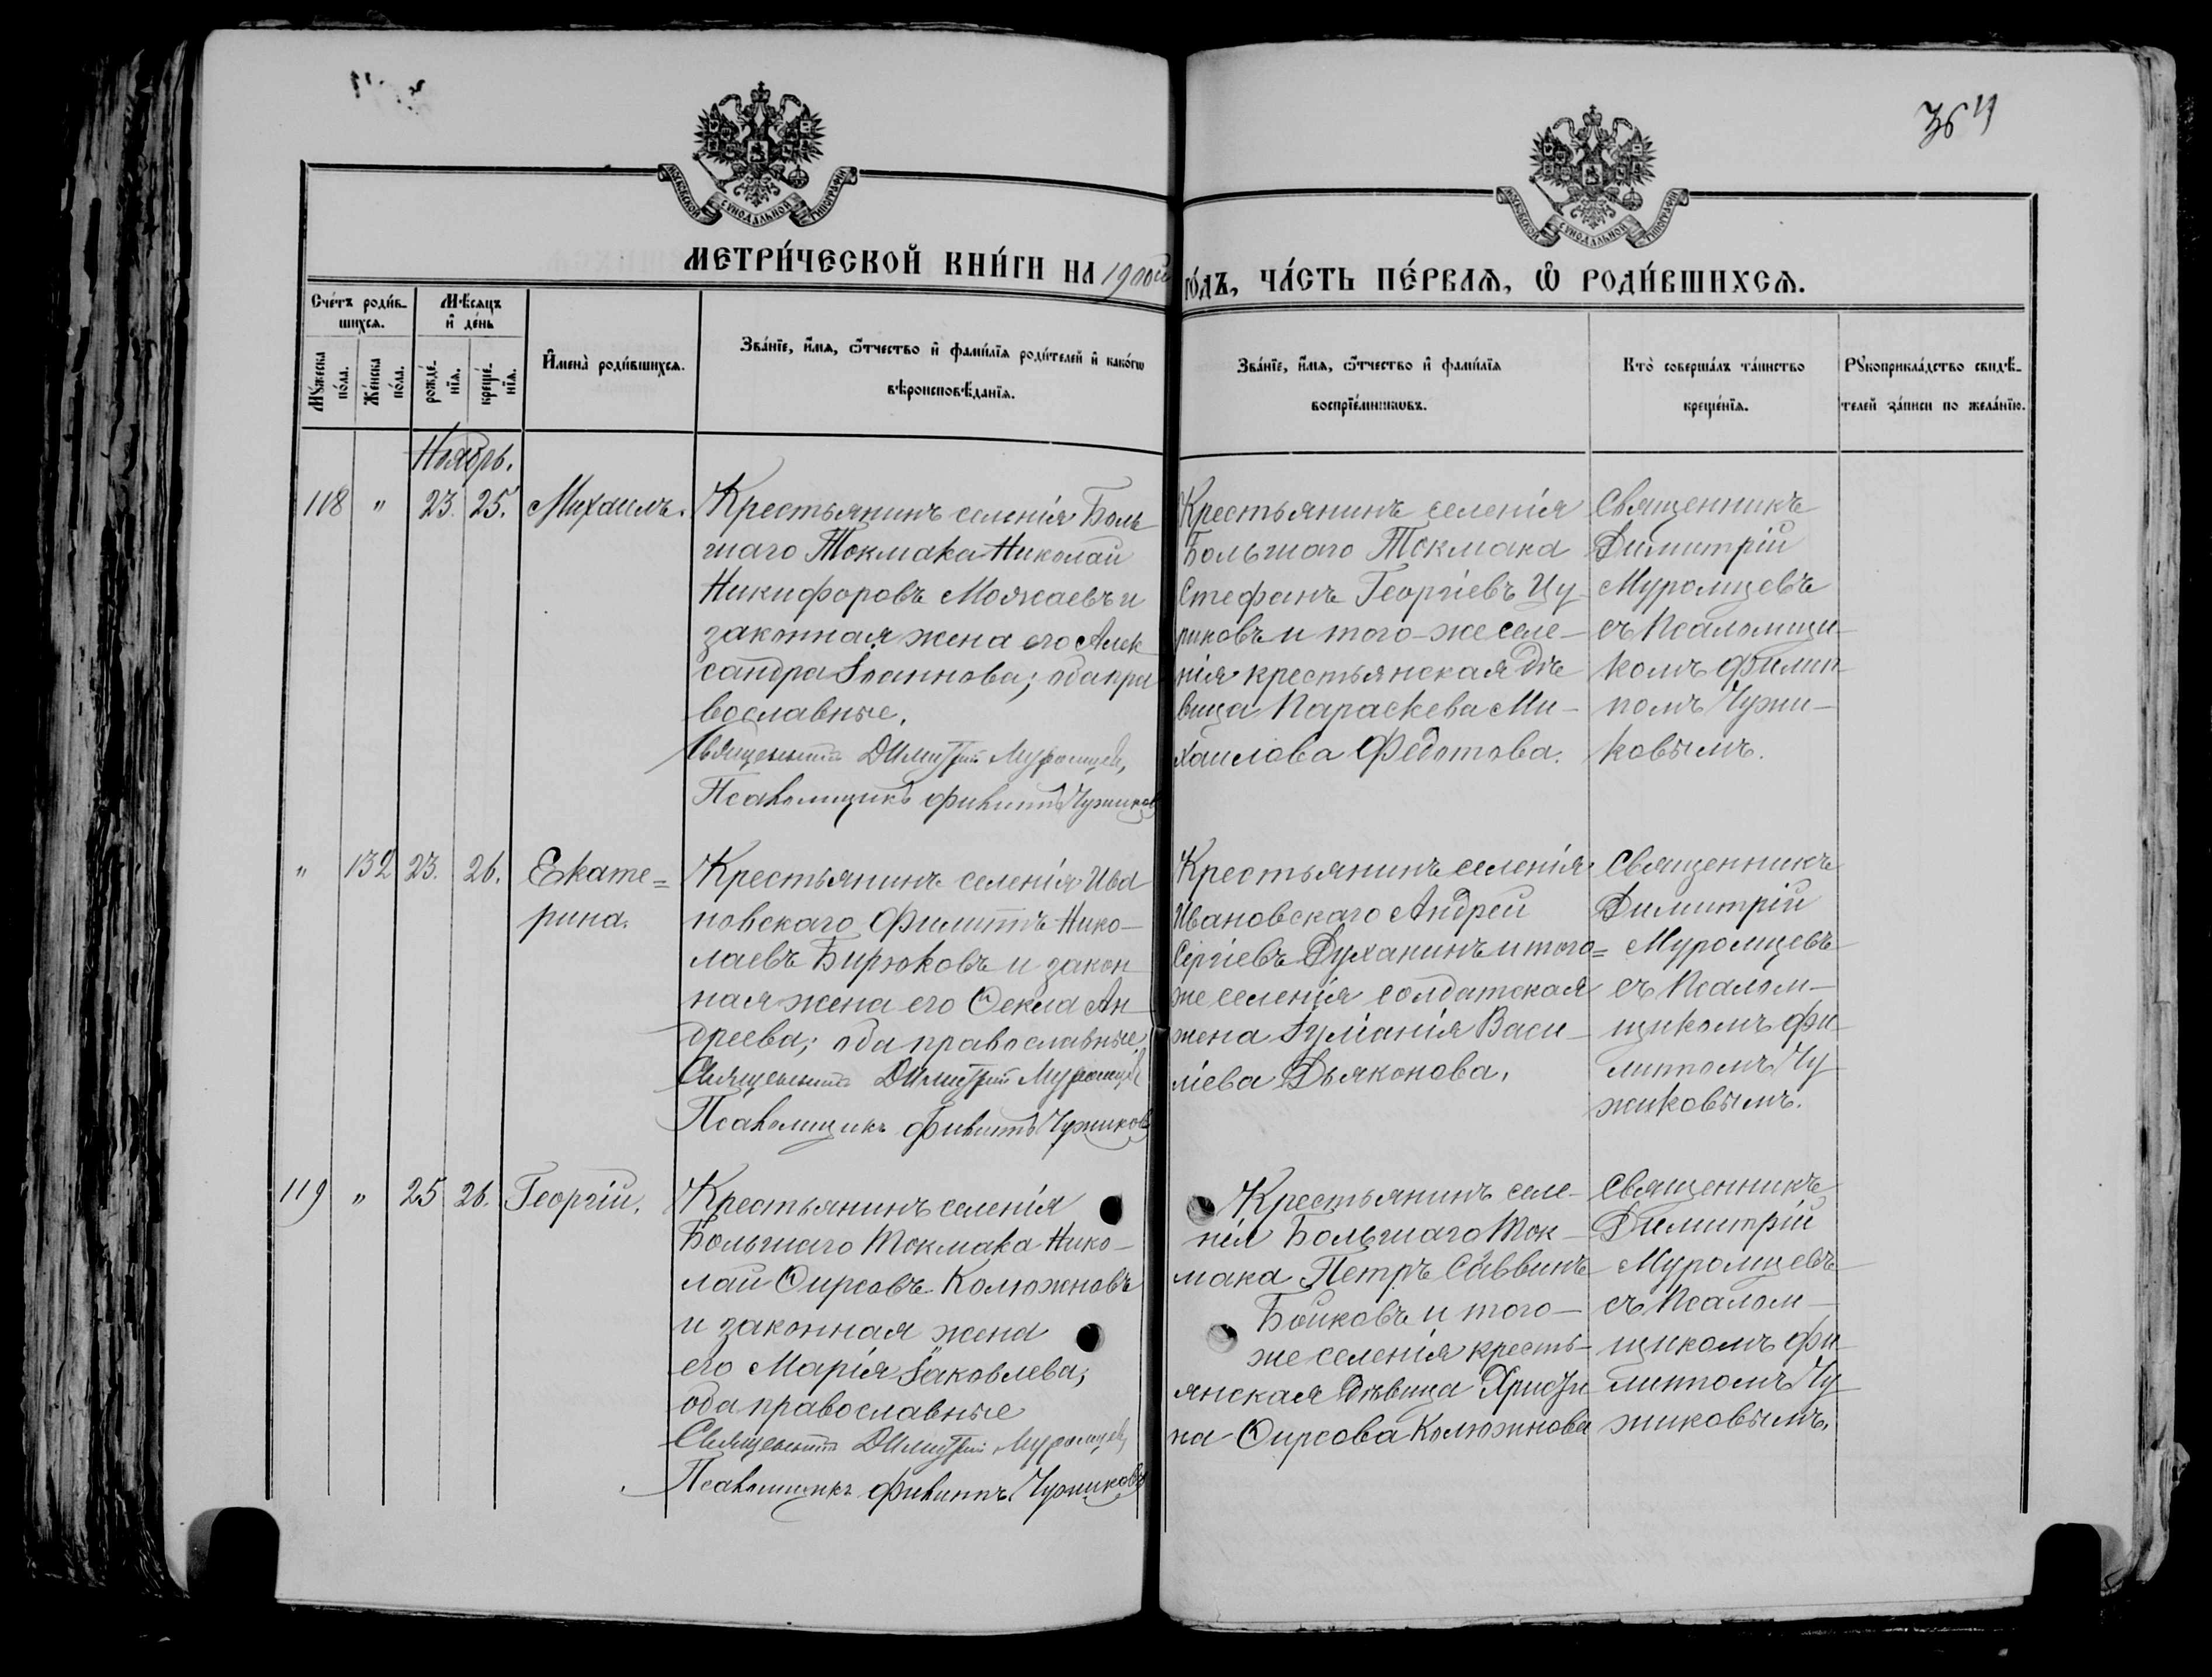 364
МОСКОВСКОЙ СѴНОДАЛЬНОЙ ТИПОГРАФІИ
МОСКОВСКОЙ СѴНОДАЛЬНОЙ ТИПОГРАФІИ
МЕТРИ́ЧЕСКОЙ КНИ́ГИ НА 1900й го́дъ, ЧА́СТЬ ПЕ́РВАѦ, Ѡ҆ РОДИ́ВШИХСѦ.
Сче́тъ роди́в-
шихсѧ.
Мѣ́сѧцъ
и҆ де́нь
Мꙋ́жеска
по́ла.
Же́нска
по́ла.
рожде́-
нїѧ.
креще́-
нїѧ.
И҆мена̀ роди́вшихсѧ.
Зва́нїе, и҆́мѧ, ѻ҆́тчество и҆ фами́лїѧ роди́телей и҆ како́гѡ
вѣроисповѣ́данїѧ.
Зва́нїе, и҆́мѧ, ѻ҆́тчество и҆ фами́лїѧ
воспрїе́мникѡвъ.
Кто̀ соверша́лъ та́инство
креще́нїѧ.
Рꙋкоприкла́дство свидѣ́-
телей за́писи по жела́нїю.
Ноябрь.
118 " 23. 25. Михаилъ.
Крестьянинъ селенія Боль
шаго Токмака Николай
Никифоровъ Можаевъ и
законная жена его Алек
сандра Іоаннова; оба пра
вославные.
Священникъ Димитрій Муромцевъ,
Псаломщикъ Филиппъ Чужиковъ
Крестьянинъ селенія
Большаго Токмака
Стефанъ Георгіевъ Цу-
риковъ и того-же селе-
нія крестьянская дѣ
вица Параскева Ми-
хаилова Федотова.
Священникъ
Димитрій
Муромцевъ
съ Псаломщи-
комъ Филип-
помъ Чужи-
ковымъ.
" 132 23. 26. Екате=
рина.
Крестьянинъ селенія Ива
новскаго Филиппъ Нико-
лаевъ Бирюковъ и закон
ная жена его Ѳекла Ан
дреева; оба православные.
Священникъ Димитрій Муромцевъ
Псаломщикъ Филиппъ Чужиковъ
Крестьянинъ селенія
Ивановскаго Андрей
Сергіевъ Духанинъ и того=
же селенія солдатская
жена Іуліанія Васи-
ліева Дьяконова.
Священникъ
Димитрій
Муромцевъ
съ Псалом-
щикомъ Фи-
липпомъ Чу
жиковымъ.
119 " 25 26. Георгій.
Крестьянинъ селенія
Большаго Токмака Нико-
лай Ѳирсовъ Колюжновъ
и законная жена
его Марія Іаковлева;
оба православные
Священникъ Димитрій Муромцевъ,
Псаломщикъ Филиппъ Чужиковъ
Крестьянинъ селе-
нія Большаго Ток-
мака Петръ Саввинъ
Бойковъ и того-
же селенія кресть-
янская дѣвица Христи
на Ѳирсова Колюжнова
Священникъ
Димитрій
Муромцевъ
съ Псалом-
щикомъ Фи-
липпомъ Чу
жиковымъ.